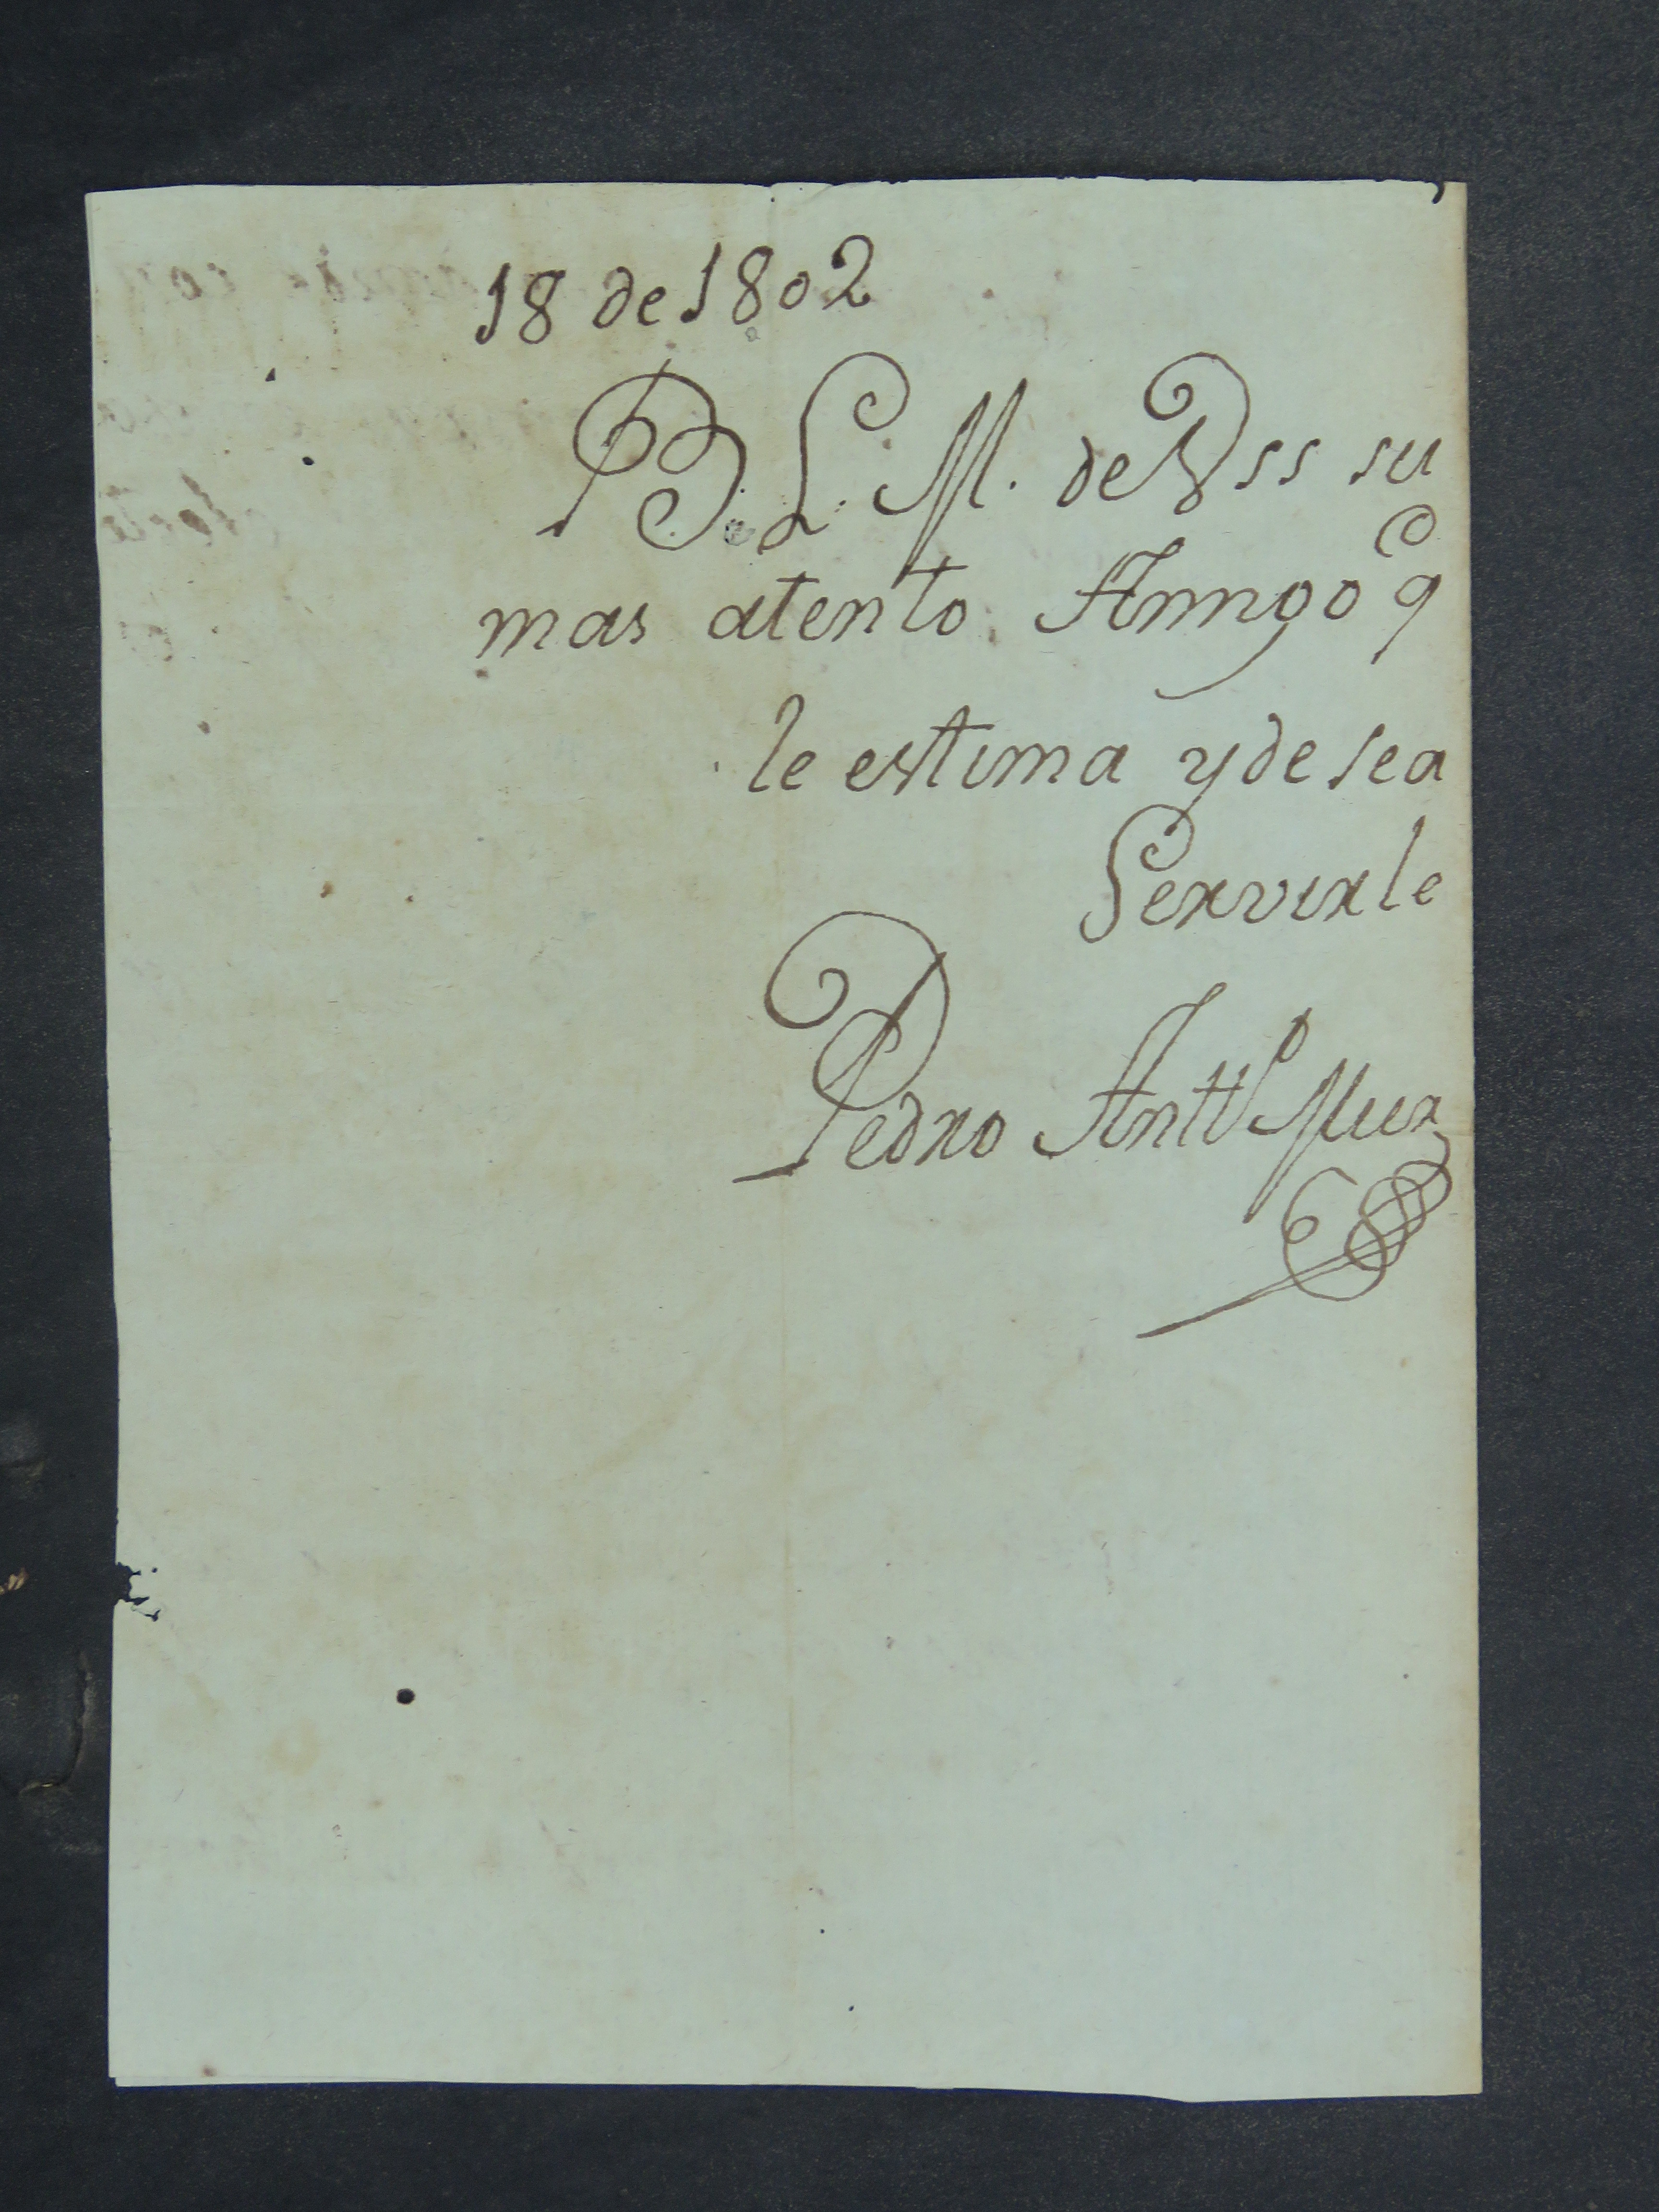 18 de 1802
B. L. M. de Vss su
mas atento Amigo q
le estima y desea
Servirle
Pedro Antto Mur